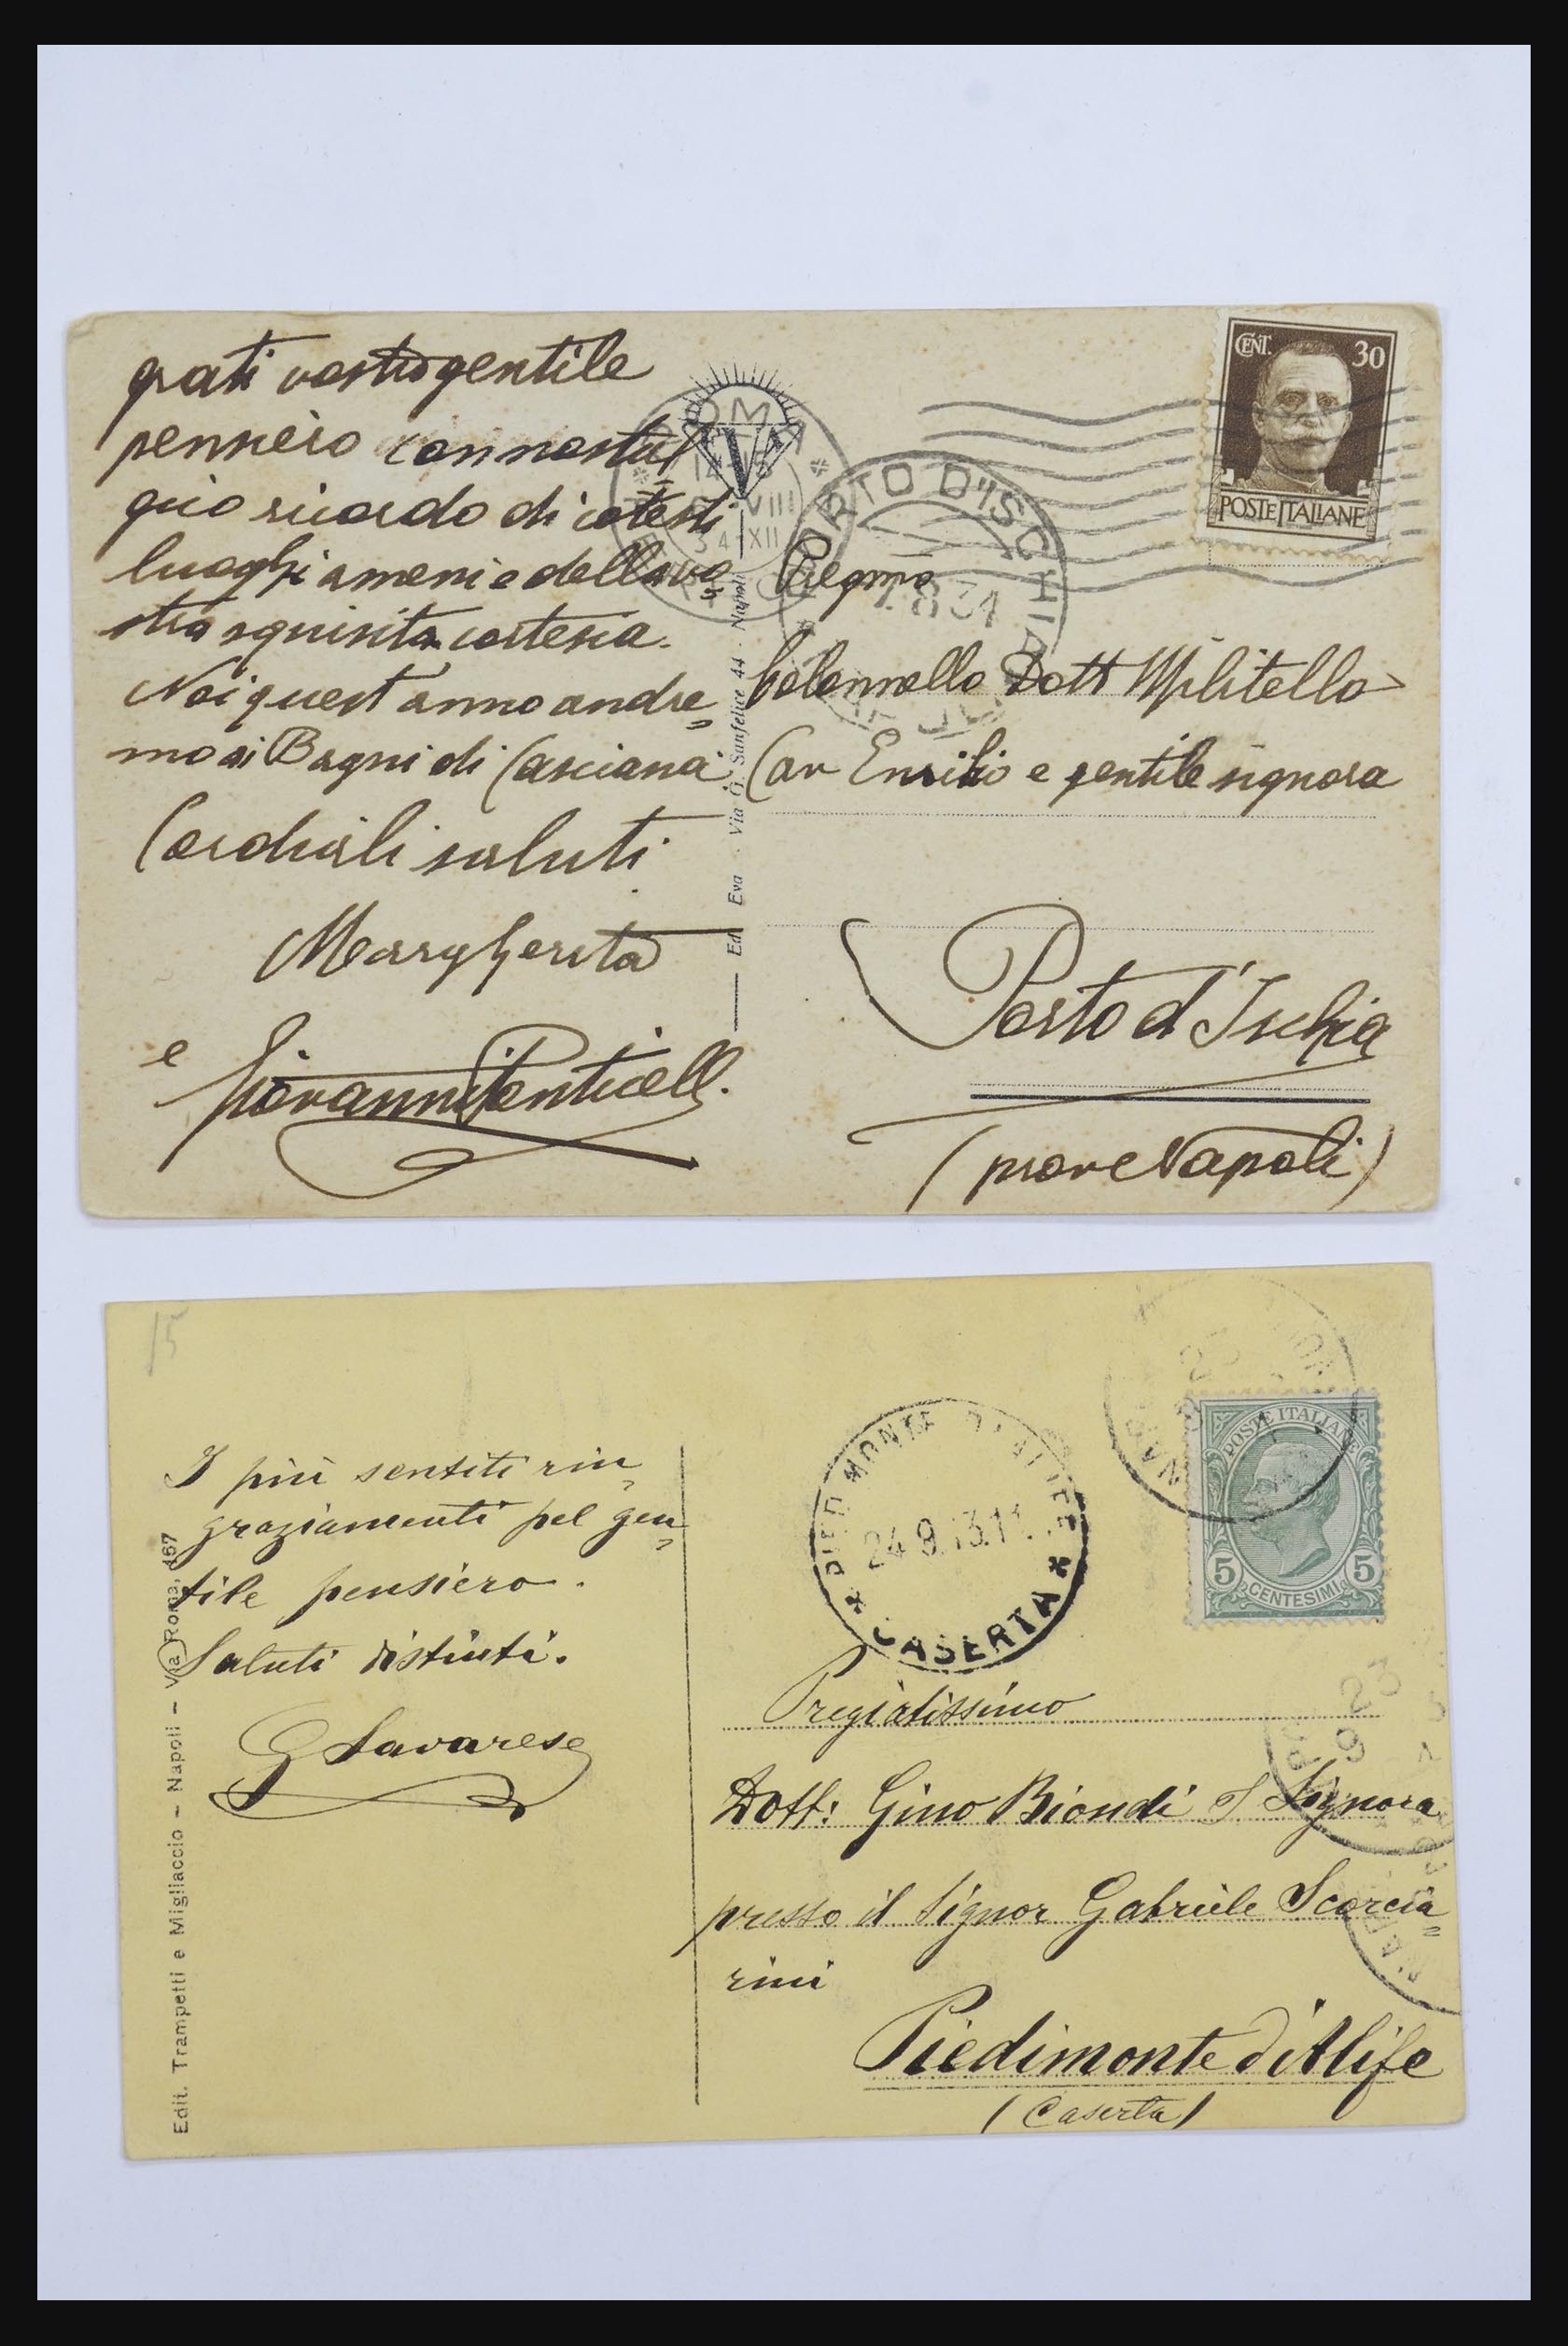 grati vostro gentile
pensiero con nostal
gico ricordo di cotesti
luoghi ameni e della vo
stra squisita cortesia.
Noi quest'anno andre=
mo ai Bagni di Casciana
Cordiali saluti
Margherita
e Giovanni Ponticelli
ROMA
VIII
34 XII
V
Ed. Eva - Via G. Sanfelice 44 - Napoli
PORTO D'ISCHIA
7.8.34
NAPOLI
CENT. 30
POSTE ITALIANE
Pregmo
Colonnello Dott Militello
Cav Emilio e gentile signora
Porto d'Ischia
(prov Napoli)
15
I più sentiti rin=
graziamenti pel gen=
tile pensiero.
Saluti distinti.
G Savarese
Edit. Trampetti e Migliaccio - Napoli - Via Roma, 167
PIEDIMONTE D'ALIFE
24.9.13.11
* CASERTA *
POSTE ITALIANE
5 5
CENTESIMI
Pregiatissimo
Dott: Gino Biondi e Signora
presso il Signor Gabriele Scorcia=
rini
Piedimonte d'Alife
(Caserta)
23
9